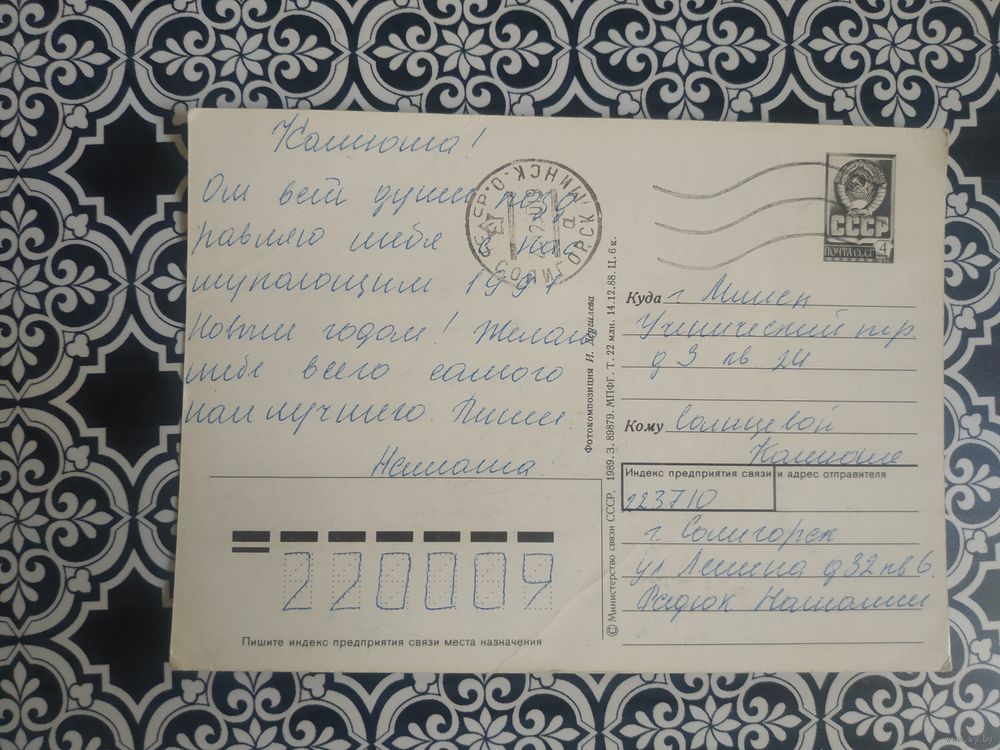 Катюша!
От всей души позд
равляю тебя с нас
тупающим 1991
Новым годом! Желаю
тебе всего самого
наилучшего. Пиши.
Наташа.
СССР
ПОЧТА СССР
4
Куда г. Минск
Ученический пер.
д 3 кв. 24
Кому Солнцевой
Катюше
Индекс предприятия связи и адрес отправителя
223710
г. Солигорск
ул Ленина д 32 кв 6
Радюк Наталии.
© Министерство связи СССР. 1989. З. 89879. МПФГ. Т. 22 млн. 14.12.88. Ц. 6 к.
Фотокомпозиция И. Дергилева
220009
Пишите индекс предприятия связи места назначения
www.ay.by